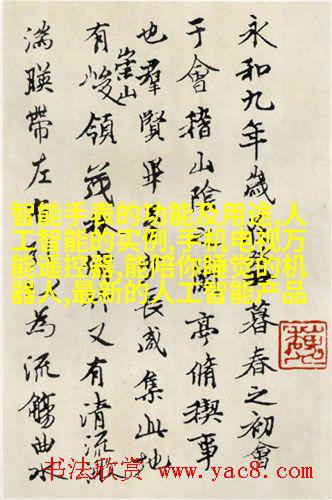 永和九年歲暮春之初會
于會稽山陰亭脩禊事
也羣賢畢長咸集此地
有崇山峻領茂又有清流激
湍暎帶左為流觴曲水
智能手表的功能及用途,人
工智能的实例,手机电视万
能遥控器,能陪你睡觉的机
器人,最新的人工智能产品
书法欣赏 www.yac8.com